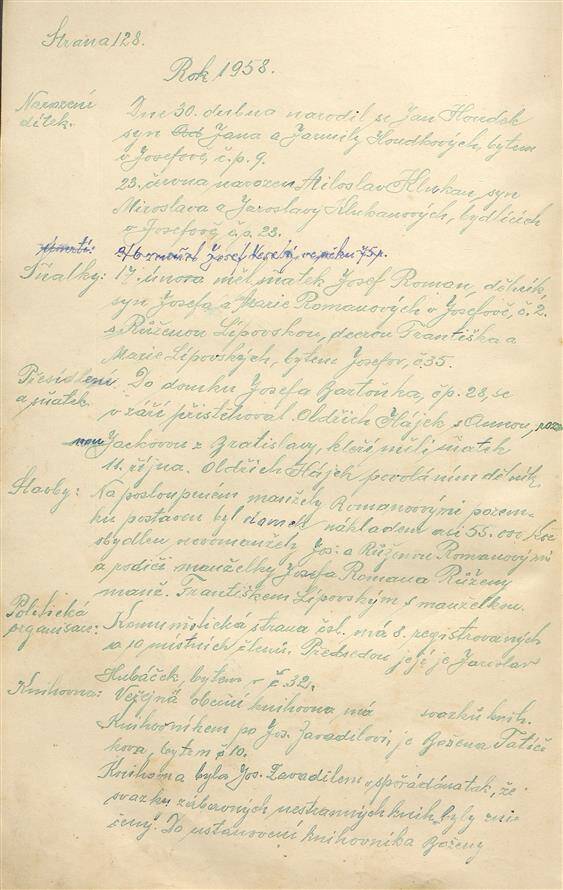 Strana 128.
Rok 1958.
Narození dítek.
Dne 30. dubna narodil se Jan Houdek
syn Jana a Jarmily Houdkových, bytem
v Josefově, č.p. 9.
23. června narozen Miloslav Klukan, syn
Miroslava a Jaroslavy Klukanových, bydlících
v Josefově č.p. 23.
Úmrtí: 2/6 zemřel Josef Veselý ve věku 75 r.
Sňatky: 17. února měl sňatek Josef Roman, dělník,
syn Josefa a Marie Romanových v Josefově, č. 2.
s Růženou Lípovskou, dcerou Františka a
Marie Lípovských, bytem Josefov, č. 35.
Přesídlení Do domku Josefa Bartoňka, čp. 28, se
a sňatek. v září přistěhoval Oldřich Hájek s Annou, roze
nou Jackovou z Bratislavy, kteří měli sňatek
11. října. Oldřich Hájek povoláním dělník.
Stavby: Na postoupeném manžely Romanovými pozem-
ku postaven byl domek nákladem asi 55.000 Kčs
obydlen novomanžely Jos. a Růženou Romanovými
a rodiči manželky Josefa Romana Růženy
manž. Františkem Lípovským s manželkou.
Politická Komunistická strana čsl. má 8 registrovaných
organisace: a 10 místních členů. Předsedou její je Jaroslav
Hubáček, bytem v č. 32.
Knihovna: Veřejná obecní knihovna má svazků knih.
Knihovníkem po Jos. Zavadilovi, je Božena Tatíč
kova, bytem č 10.
Knihovna byla Jos. Zavadilem uspořádána tak, že
svazky zúborovných nestranných knih, byly zni-
čeny. Do ustanovení knihovníka Boženy